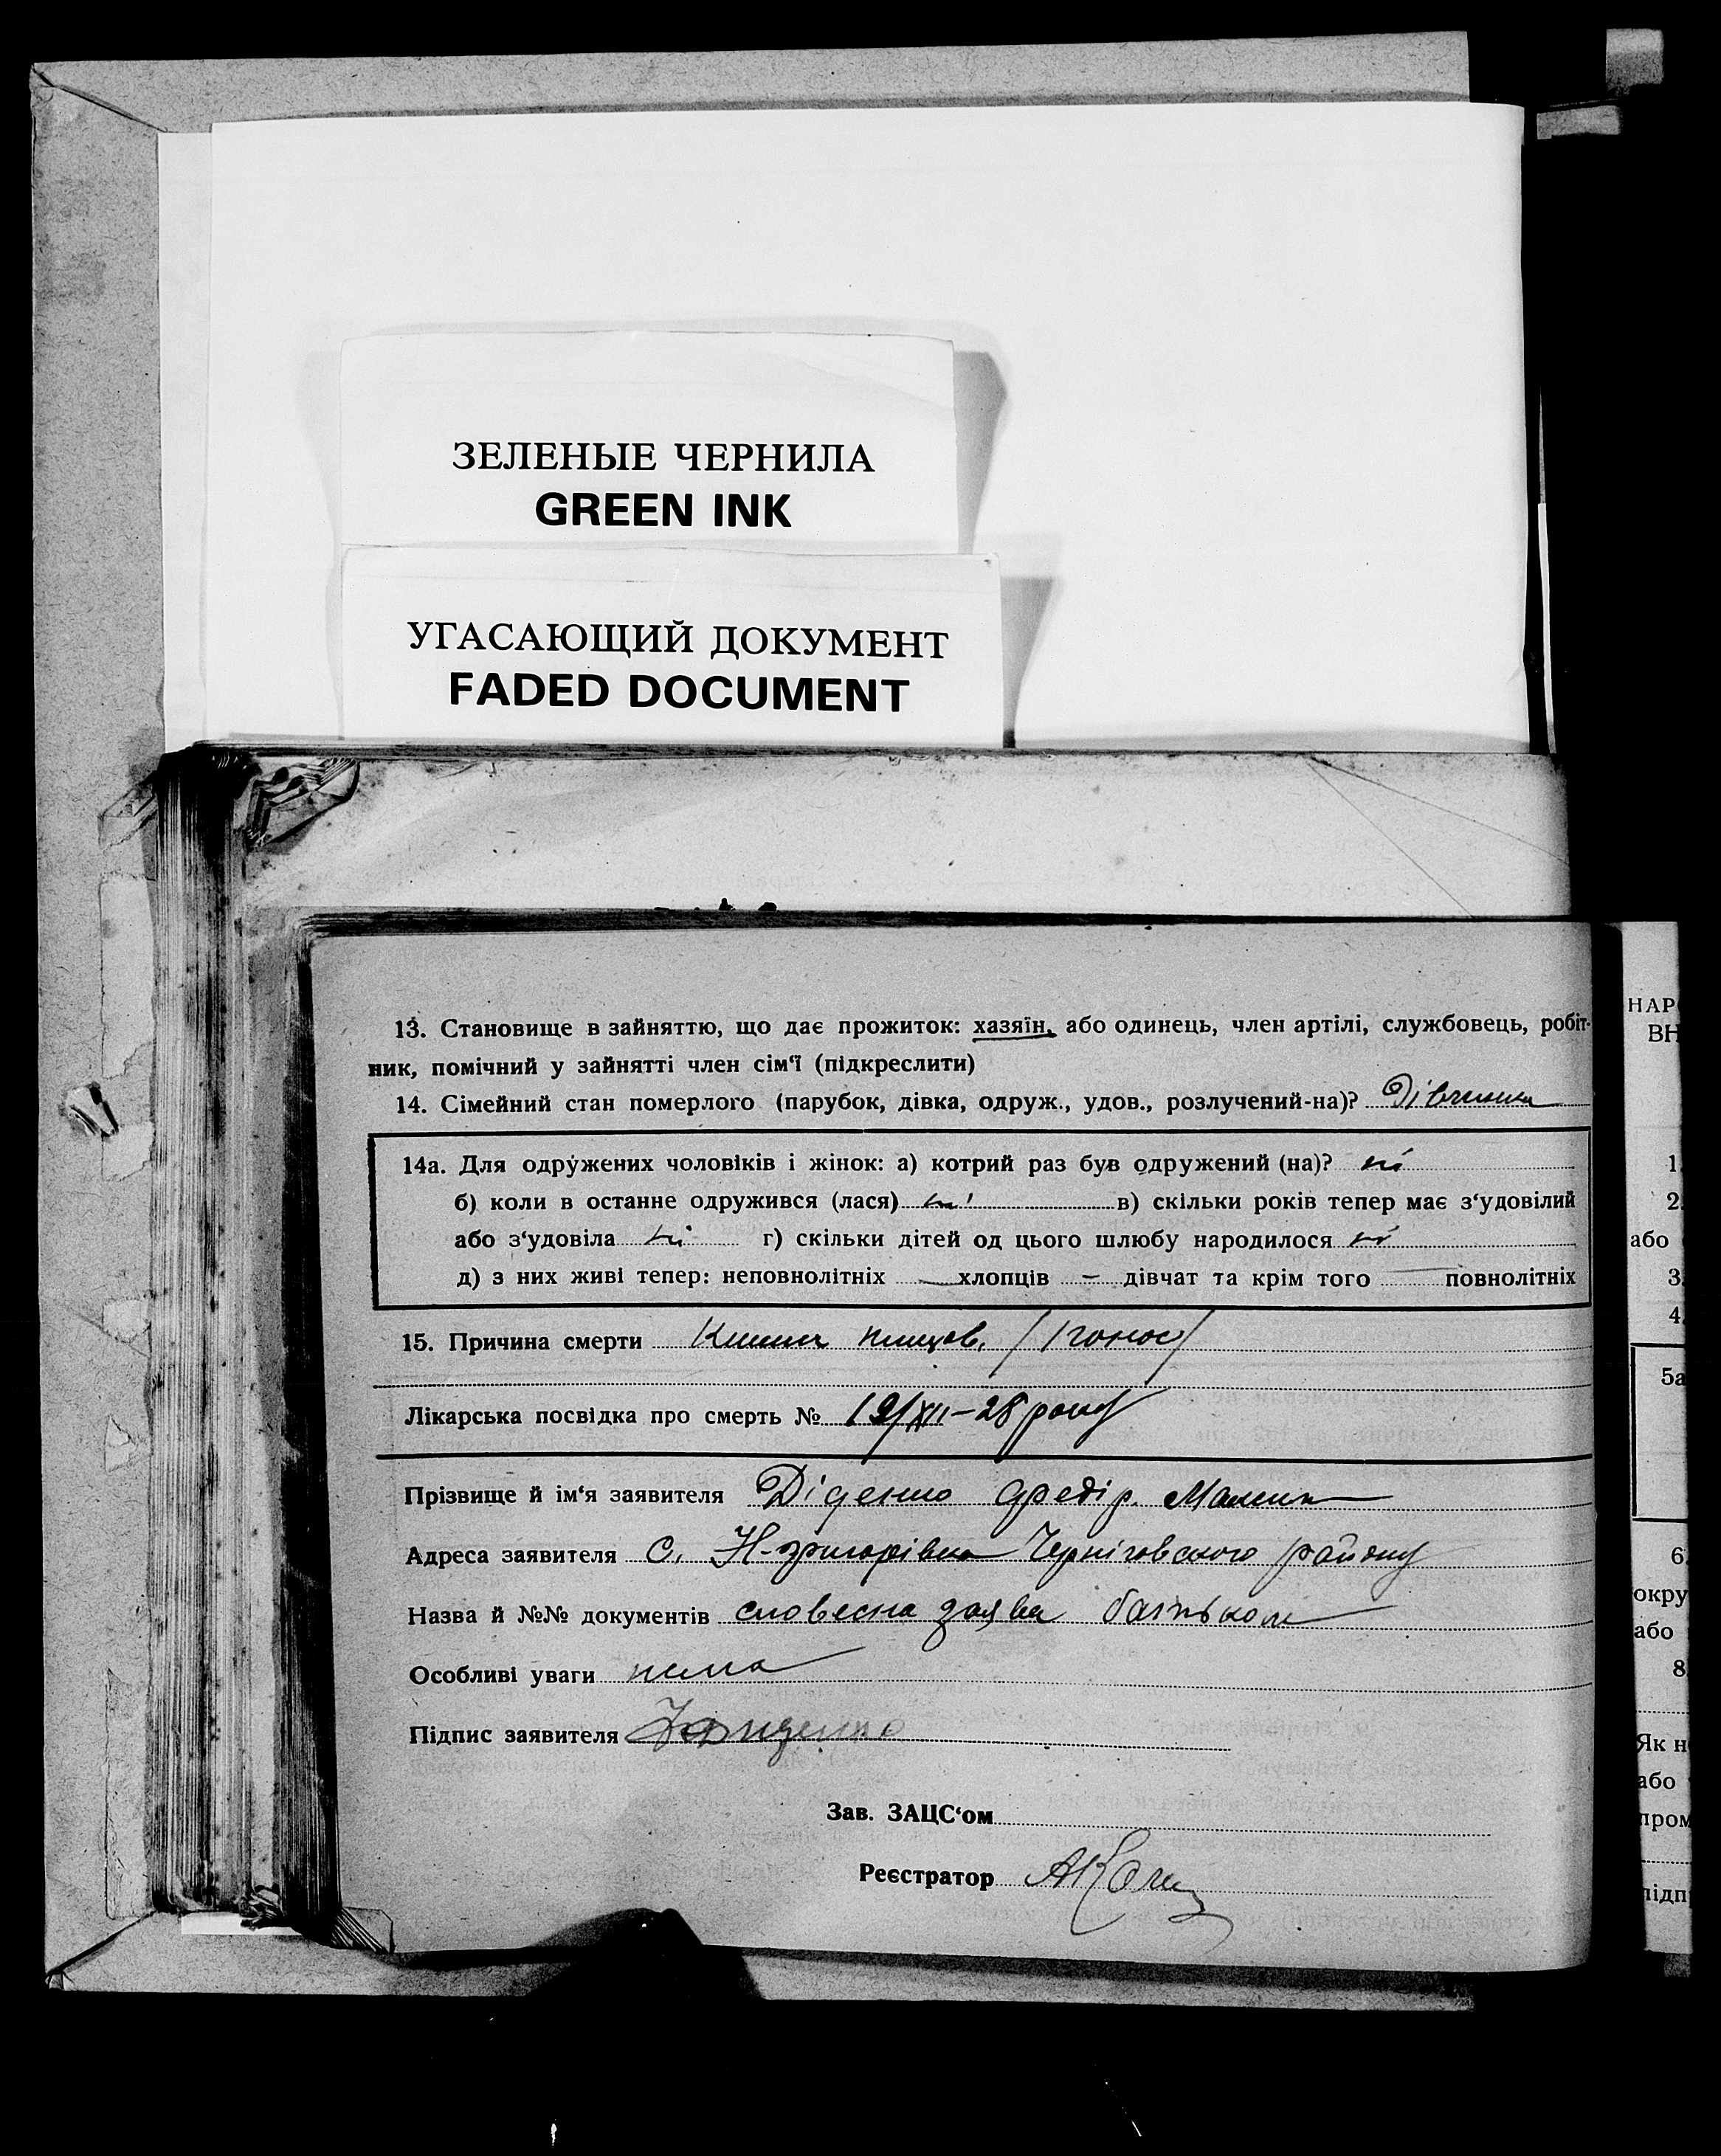 ЗЕЛЕНЫЕ ЧЕРНИЛА
GREEN INK
УГАСАЮЩИЙ ДОКУМЕНТ
FADED DOCUMENT
13. Становище в зайняттю, що дає прожиток: хазяїн, або одинець, член артілі, службовець, робіт-
ник, помічний у зайнятті член сім‘ї (підкреслити)
14. Сімейний стан померлого (парубок, дівка, одруж., удов., розлучений-на)? Дівчина
14а. Для одружених чоловіків і жінок: а) котрий раз був одружений (на)? ні
б) коли в останне одружився (лася) ні в) скільки років тепер має з‘удовілий
або з‘удовіла ні г) скільки дітей од цього шлюбу народилося ні
д) з них живі тепер: неповнолітніх — хлопців — дівчат та крім того — повнолітніх
15. Причина смерти
Лікарська посвідка про смерть № 19/XII-28 року
Прізвище й ім‘я заявителя Діденко Федір
Адреса заявителя с. Н-григорівка Черніговского району
Назва й №№ документів словесна заява батьком
Особливі уваги нема
Підпис заявителя
Зав. ЗАЦС‘ом
Реєстратор
НАР
ВН
1
2
або
3
4
5а
6
окру
або
8
Як н
або
пром
підп